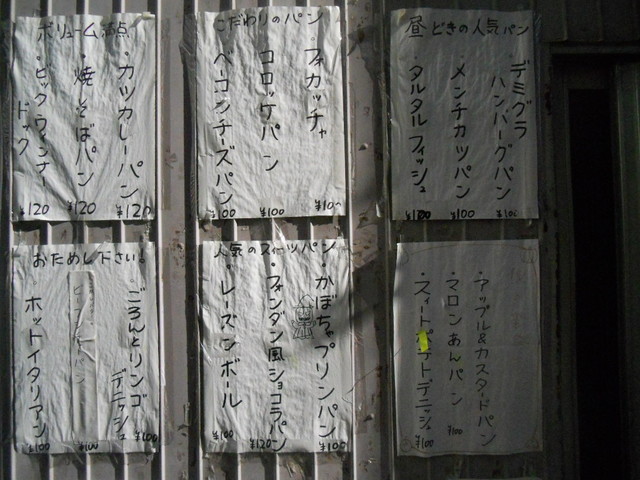 ボリューム満点
・カツカレーパン
¥120
・焼そばパン
¥120
・ビックウィンナー
ドック
¥120
こだわりのパン
・フォカッチャ
¥100
コロッケパン
¥100
ベーコンチーズパン
¥100
昼どきの人気パン
・デミグラ
ハンバーグパン
¥100
・メンチカツパン
¥100
・タルタルフィッシュ
おためし下さい。
・ごろんとリンゴ
デニッシュ
¥100
¥100
・ホットイタリアン
¥100
人気のスイーツパン
・かぼちゃプリンパン
¥100
・フォンダン風ショコラパン
¥120
・レーズンボール
¥100
・アップル&カスタードパン
¥100
・マロンあんパン
¥100
・スィートポテトデニッシュ
¥100